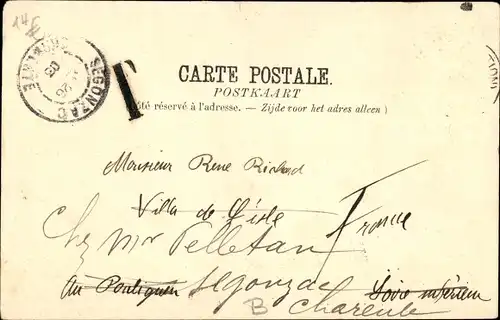 14
SEGONZAC
CHARENTE
T
CARTE POSTALE.
POSTKAART
(Côté réservé à l'adresse. — Zijde voor het adres alleen)
Monsieur René Richard
Villa de l'isle
Chez Mr Pelletan France
au Pouliguen Segonzac Loire inférieure
B Charente